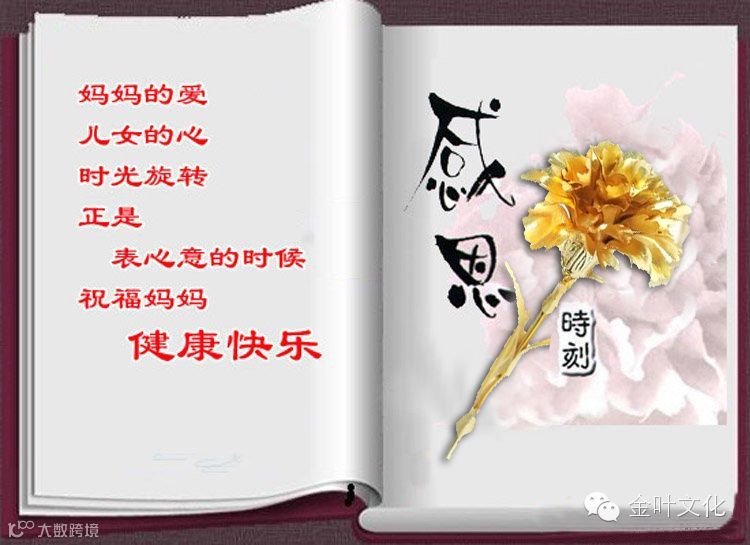 妈妈的爱
儿女的心
时光旋转
正是
表心意的时候
祝福妈妈
健康快乐
感恩
時刻
金叶文化
大数跨境